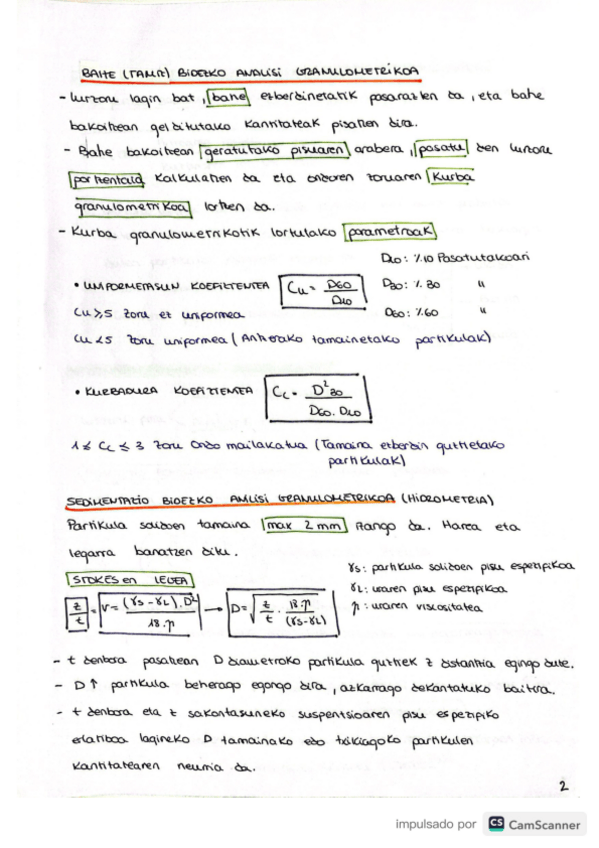 BAHE (TAMIZ) BIDEZKO ANALISI GRANULOMETRIKOA
- Lurzoru lagin bat, bahe ezberdinetatik pasarazten da, eta bahe
bakoitzean gelditutako kantitateak pisatzen dira.
- Bahe bakoitzean geratutako pisuaren arabera, pasatu den lurzoru
portzentaia kalkulatzen da eta ondoren zoruaren kurba
granulometrikoa lortzen da.
- Kurba granulometrikotik lortutako parametroak
D10: %10 Pasatutakoari
• UNIFORMETASUN KOEFIZIENTEA Cu = D60/D10 D30: % 30 "
Cu ≥ 5 zoru ez uniformea D60: % 60 "
Cu < 5 zoru uniformea (Antzerako tamainetako partikulak)
• KURBADURA KOEFIZIENTEA Cc = D²30/D60·D10
1 ≤ Cc ≤ 3 zoru ondo mailakatua (Tamaina ezberdin guztietako
partikulak)
SEDIMENTAZIO BIDEZKO ANALISI GRANULOMETRIKOA (HIDROMETRIA)
Partikula solidoen tamaina max 2 mm izango da. Harea eta
legarra banatzen ditu.
γs: partikula solidoen pisu espezifikoa
STOKESen LEGEA
γL: uraren pisu espezifikoa
z/t = V = (γs - γL)·D²/18·μ → D = √(z/t · 18·μ/(γs-γL)) μ: uraren viscositatea
- t denbora pasatzean D diametroko partikula guztiek z distantzia egingo dute.
- D↑ partikula beherago egongo dira, azkarrago dekantatuko baitira.
- t denbora eta z sakontasuneko suspentsioaren pisu espezifiko
erlatiboa lagineko D tamainako edo txikiagoko partikulen
kantitatearen neurria da.
2
impulsado por CS CamScanner